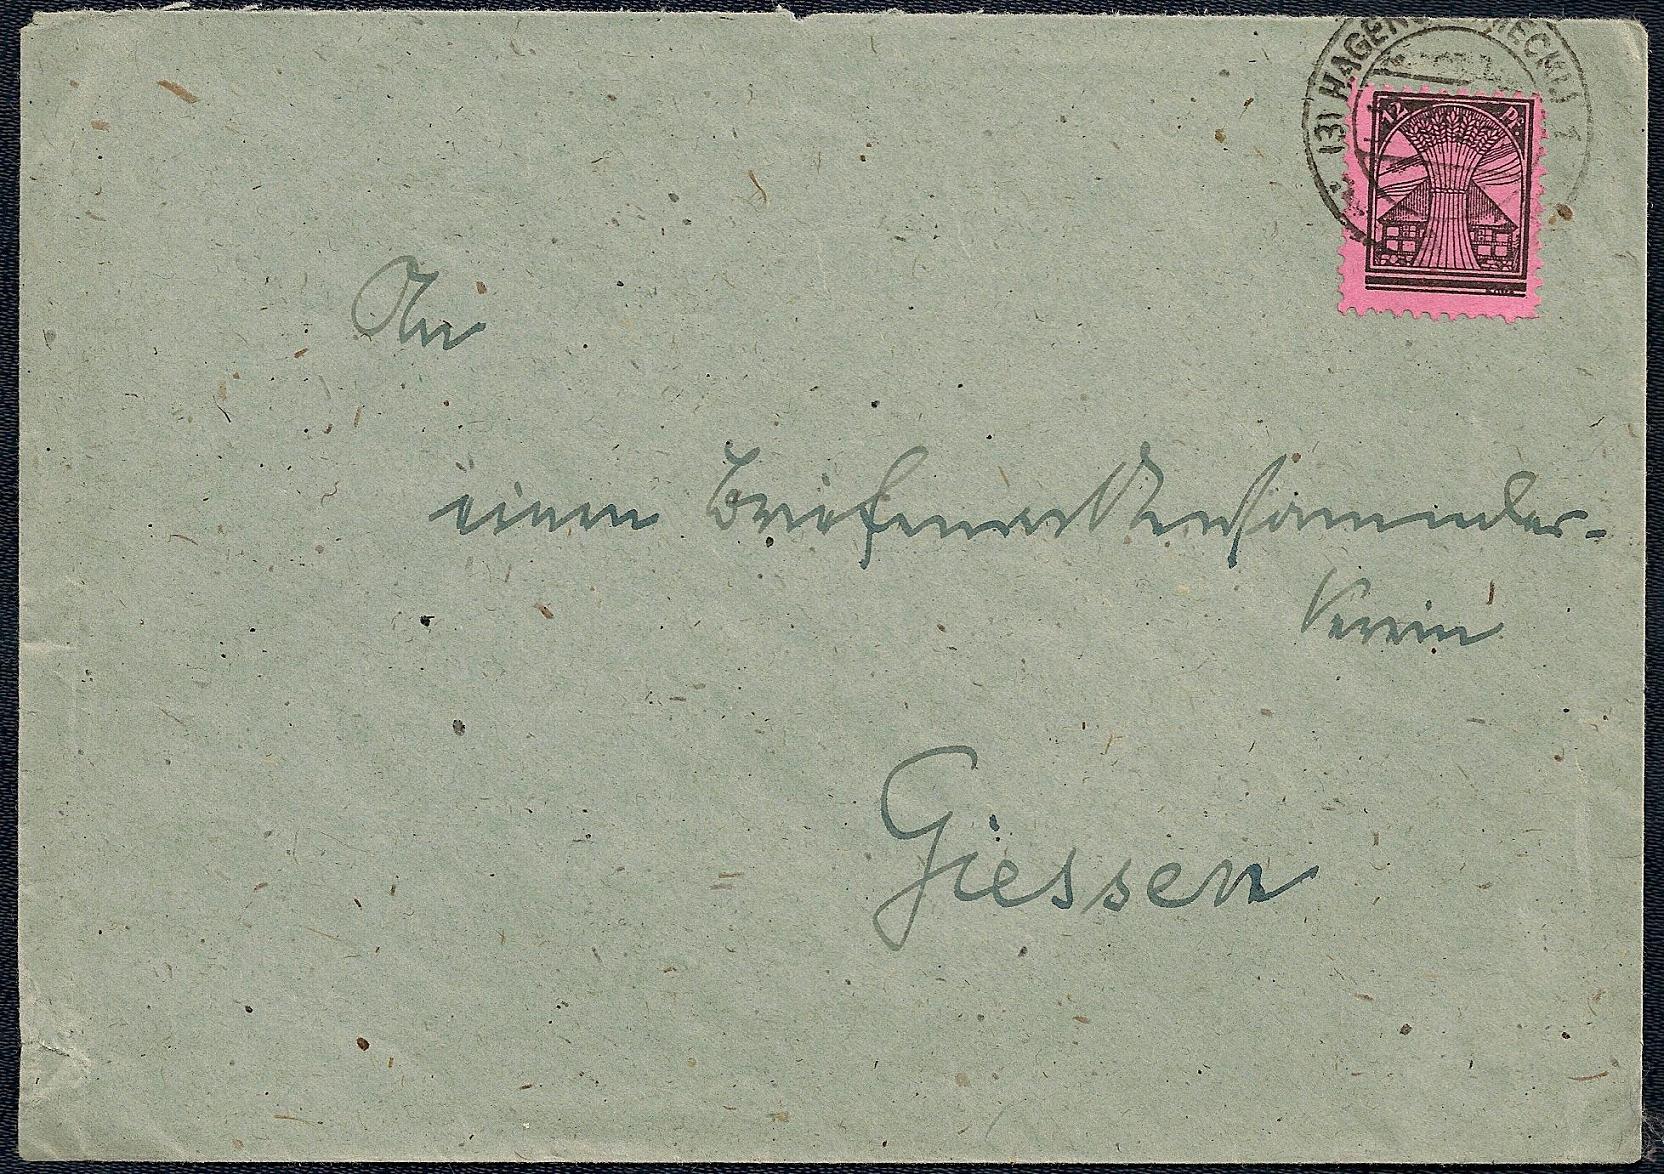 (3) HAGENOW (MECKL) 1
12 Pf
An
einen Briefmarkensammler-
Verein
Giessen